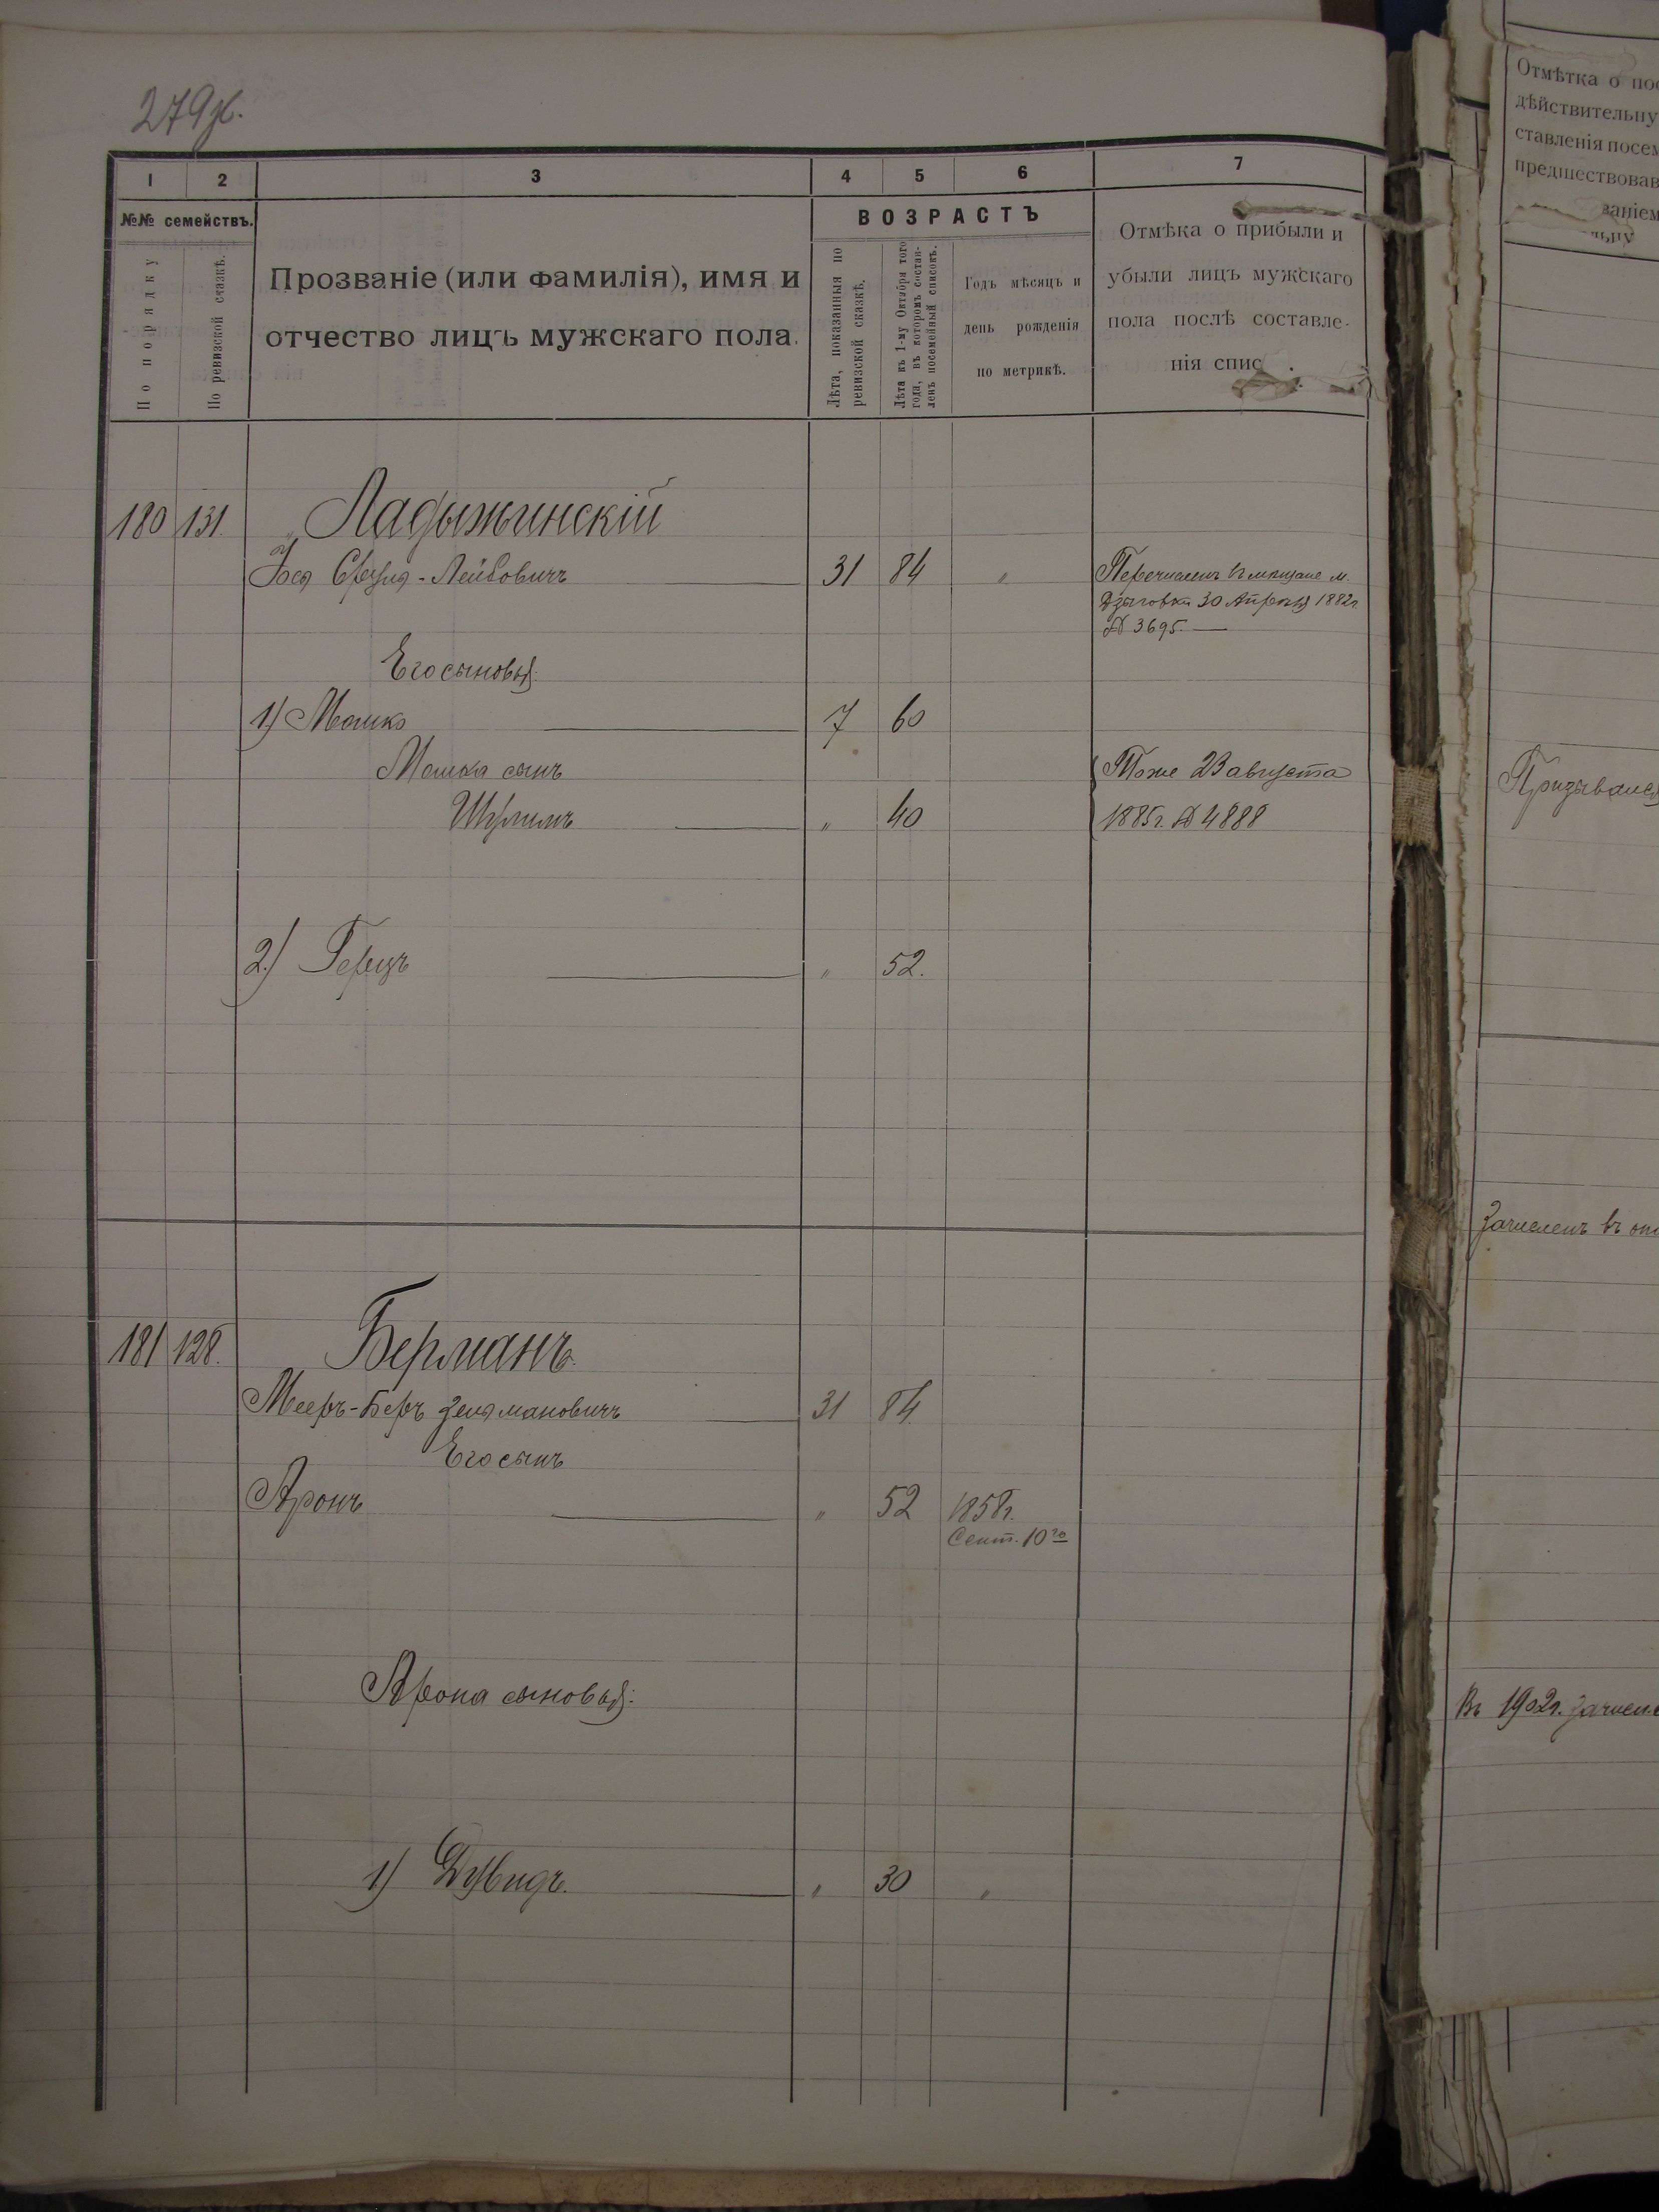 279
1 2 3 4 5 6 7
№№ семействъ.
По порядку
По ревизской сказкѣ.
Прозваніе (или фамилія), имя и
отчество лицъ мужскаго пола.
ВОЗРАСТЪ
Лѣта, показанныя по
ревизской сказкѣ.
Лѣта къ 1-му Октября того
года, въ которомъ состав-
ленъ посемейный списокъ.
Годъ мѣсяцъ и
день рожденія
по метрикѣ.
Отмѣка о прибыли и
убыли лицъ мужскаго
пола послѣ составле-
нія спис
180 131. Ладыжинскій
Іося Сруля-Лейбовичъ 31 84 "
Перечисленъ въ мѣщане м.
Дзыговки 30 Апрѣля 1882г.
№ 3695.
Его сыновья:
1) Мошко 7 60
Мошка сынъ
Шулимъ " 40
Тоже 23 августа
1885г. № 4888
2.) Герцъ " 52.
181 128. Берманъ.
Мееръ-Беръ Зельмановичъ 31 84.
Его сынъ
Аронъ " 52 1858г.
Сент. 10го
Арона сыновья:
1) Дувидъ. " 30 "
Отмѣтка о пос
дѣйствительну
ставленія посем
предшествовав
ваніем
льну
Призывался
Зачисленъ въ опо
Въ 1902г. зачисле